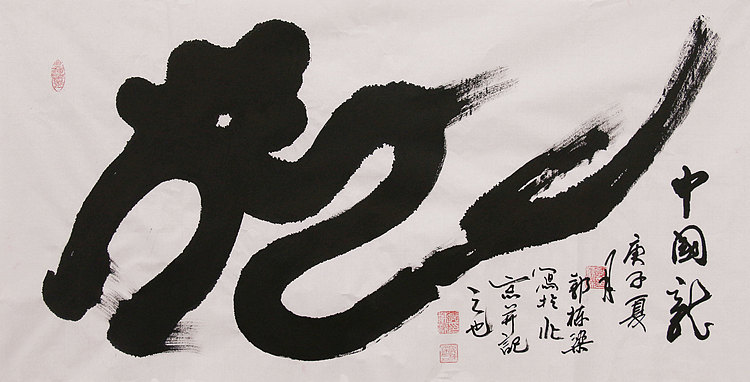 龍
中國龍
庚子夏
月
郭栋梁
寫於北
京并記
之也